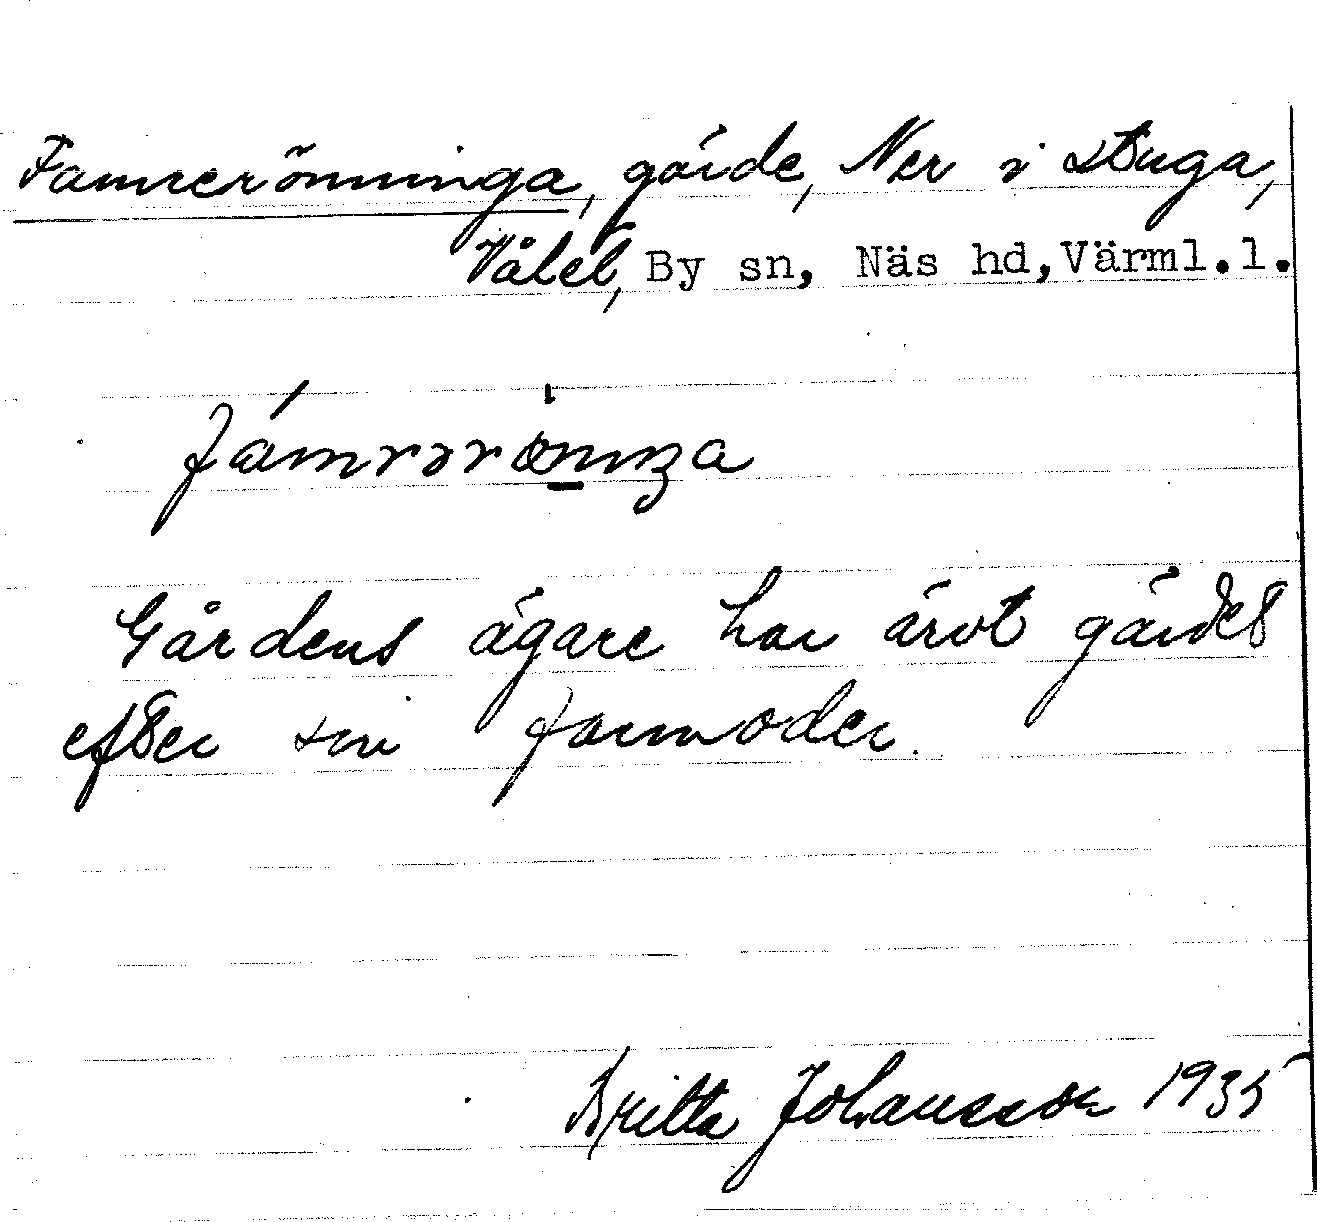 Famrerönninga, gärde, Ner i Stuga,
Vålet, By sn, Näs hd, Värml.l.
Gårdens ägare har ärvt gärdet
efter sin farmoder.
Britta Johansson 1935